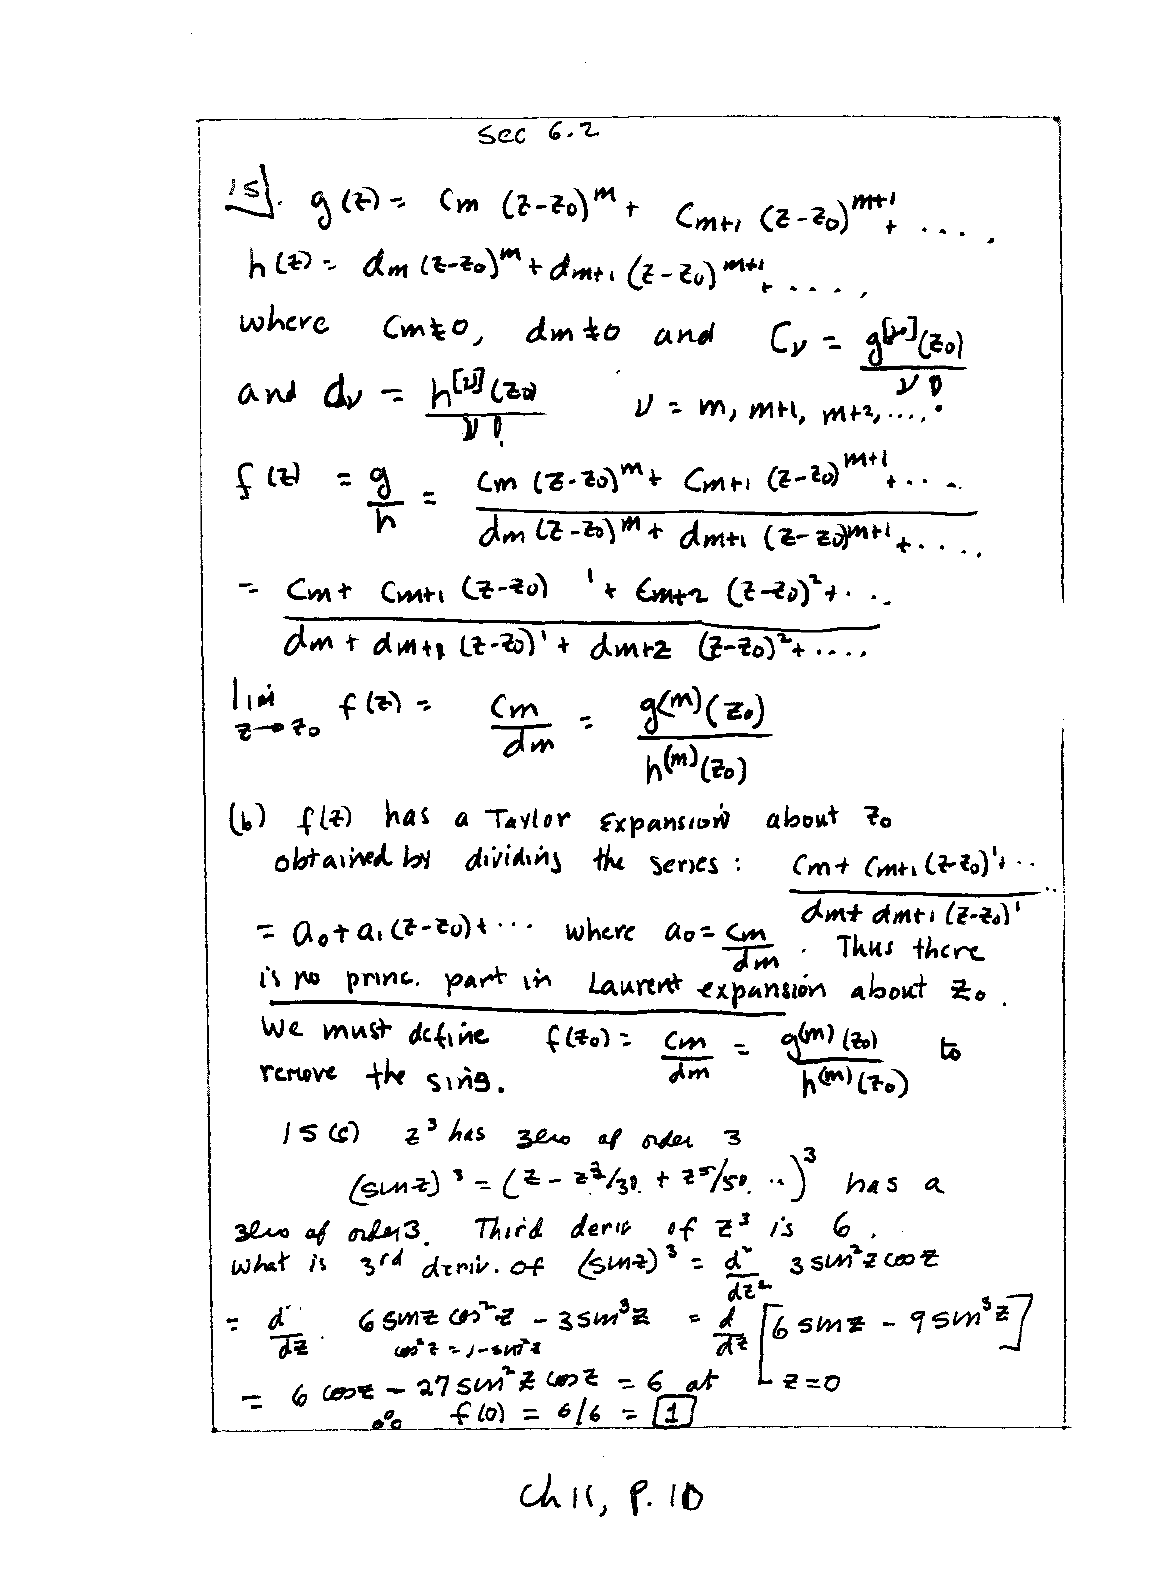 Sec 6.2
15]. g(z) = Cm (z-z₀)^m + Cm+1 (z-z₀)^m+1 + ....,
h(z) = dm (z-z₀)^m + dm+1 (z-z₀)^m+1 + ....,
where Cm≠0, dm≠0 and Cν = g^[ν](z₀) / ν!
and dν = h^[ν](z₀) / ν! ν = m, m+1, m+2, ....
f(z) = g/h = Cm (z-z₀)^m + Cm+1 (z-z₀)^m+1 + .... / dm (z-z₀)^m + dm+1 (z-z₀)^m+1 + ....
= Cm + Cm+1 (z-z₀)^1 + Cm+2 (z-z₀)² + ... / dm + dm+1 (z-z₀)^1 + dm+2 (z-z₀)² + ....
lim z→z₀ f(z) = Cm/dm = g^(m)(z₀) / h^(m)(z₀)
(b) f(z) has a Taylor Expansion about z₀
obtained by dividing the series : Cm + Cm+1 (z-z₀)^1 + .. / dm + dm+1 (z-z₀)^1 ..
= a₀ + a₁ (z-z₀) + ... where a₀ = Cm/dm . Thus there
is no princ. part in Laurent expansion about z₀.
We must define f(z₀) = Cm/dm = g^(m)(z₀) / h^(m)(z₀) to
remove the sing.
15 (c) z³ has zero of order 3
(sin z)³ = (z - z³/3! + z⁵/5! ..)³ has a
zero of order 3. Third deriv of z³ is 6.
What is 3rd deriv. of (sin z)³ = d²/dz² 3 sin²z cos z
= d/dz 6 sin z cos²z - 3 sin³z = d/dz [6 sin z - 9 sin³z]
cos²z = 1-sin²z
= 6 cos z - 27 sin²z cos z = 6 at z=0
∴ f(0) = 6/6 = 1
Ch 11, P. 10